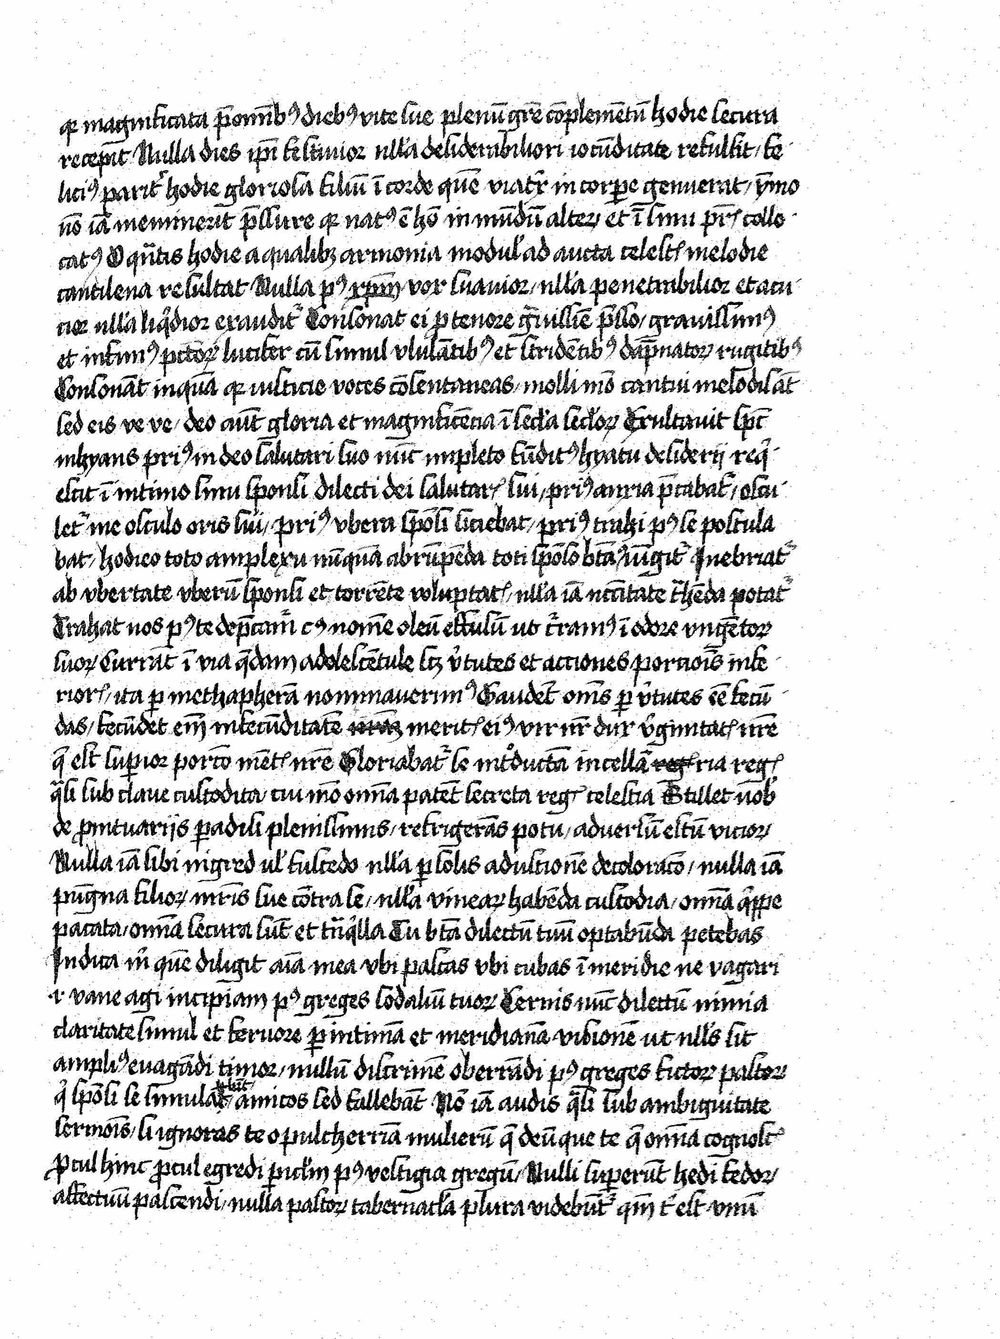 qꝫ magnificata p̄ omnib⁹ dieb⁹ vite sue plenū gr̄e cōplemētū hodie secura
recepit Nulla dies ip̄i festivior null'a desiderabiliori iocūditate refulsit / fe
lici⁹ parit᷑ hodie gloriosa filiū ī corde quē viat᷑r in corpe genuerat / v̄mo
nō iā meminerit p̄ssure qꝫ nat⁹ ē hō in mūdū alter / et ī sinu pr̄ꝭ collo
cat⁹ O qn̄tis hodie a qualibꝫ armonia modul' ad aucta celestꝭ melodie
cantilena resultat Nulla p⁹ xpm̄ vox suavior / nll'a penetrabilior et acu
cior nll'a liqͥdior exaudit᷑ Consonat ei p tenore gͣvissīe p̄sso / gravissim⁹
et infim⁹ pctōꝝ lucifer cū simul vlulātib⁹ et stridētib⁹ dāpnatoꝝ rugitib⁹
Consonāt inquā qꝫ iusticie voces cōsentaneas / molli mō cantui melodisāt
sed eis ve ve / deo aūt gloria et magnificēcia ī secl'a secl'oꝝ Exultavit spc̄
inhyans pri⁹ in deo salutari suo nūc impleto fūdit⁹ hyatu desiderij reqͥ
escit ī intimo sinu sponsi dilecti dei salutarꝭ sui / pri⁹ anxia p̄cabat᷑ / oscu
let᷑ me osculo oris sui / pri⁹ vbera spōsi siciebat / pri⁹ trahi p⁹ se postula
bat / hodie o toto amplexu nūquā abrūpēda toti spōso bt̄a iūgit᷑ Inebriat᷑
ab vbertate vberū sponsi et torrēte voluptatꝭ / nll'a iā ncc̄itate t᷑hēda potat᷑
Trahat nos p⁹ te dep̄cam᷑ c⁹ nomē oleū effusū ut c᷑ram⁹ ī odore vngētoꝝ
tuoꝝ Currāt ī via qͣdam adolescētule scꝫ v̓tutes et acciones porciōis infe
riorꝭ / ita p methapherā nominaverim⁹ Gaudēt om̄s p v̓tutes cē fecū
das / fecūdet em̄ infecūditatē meritꝭ ei⁹ vir nr̄ dux v̓ginitatꝭ nr̄e
q̄ est supior porcō mētꝭ nr̄e Gloriabat᷑ se intͦductā in cellā ria regꝭ
qͣsi sub clave custodita cui mō omn̄a patēt secreta regꝭ celestia Stillet nob'
de p̄mtuarijs padisi plenissimis / refrigerās potu / adversū estū vicioꝝ
Nulla iā sibi nigred vl' fuscedo nll'a p solis adustionē decoloracō / nulla iā
pūgna filioꝝ mr̄is sue cōtra se / nll'a vineaꝝ habēda custodia / omn̄a qͥppe
pacata / omn̄a secura sūt et tn̄qͥlla Tu bt̄a dilectū tuū optabūda petebas
Indica m̓ quē diligit aīa mea vbi pascas vbi cubas ī meridie ne vagari
r vane agi incipiam p⁹ greges sodaliū tuoꝝ Cernis nūc dilectū nimia
claritate simul et fervore p intimā et meridianā visionē ut nll's sit
ampli⁹ evagādi timor / nullū discrimē oberrādi p⁹ greges fictoꝝ pastoꝝ
qͥ spōsi se simulabūt amicos sed fallebāt Nō iā audis qͣsi sub ambiguitate
sermōis / si ignoras te o pulcherria mulierū q̄ deū que te q̄ omn̄a cognoscꝭ
Procul hinc procul egredi picl'm p⁹ vestigia gregū / Nulli supersūt hedi fedoꝝ
affectuū pascendi / nulla pastoꝝ tabernacl'a plura videbūt᷑ qm̄ t᷑ est vnū